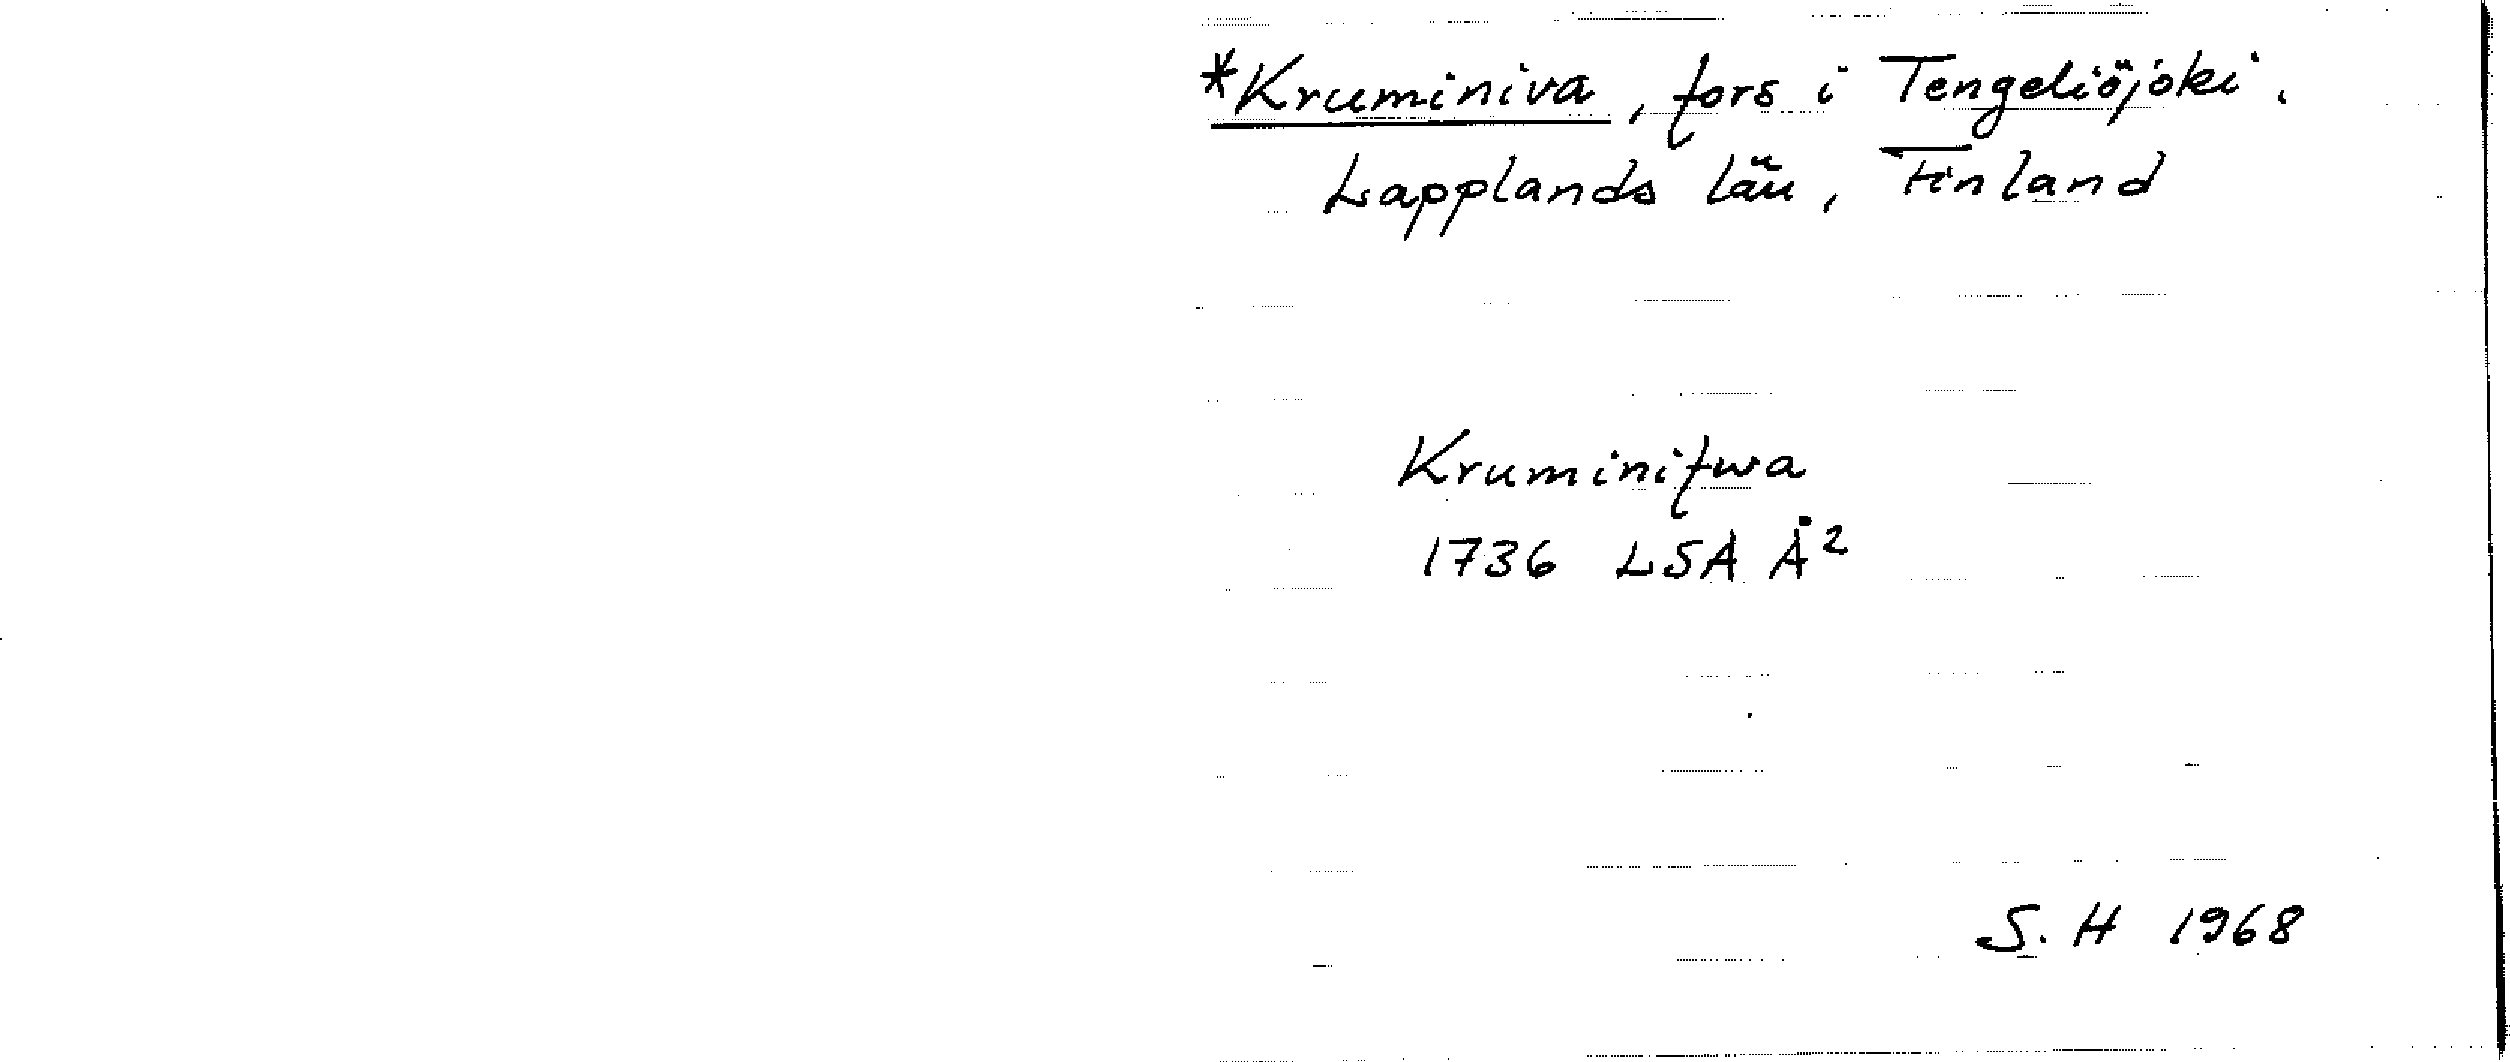 *Kruminiva, fors i Tengeliöjoki,
Lapplands län, Finland
Kruminifwa
1736 LSA Å²
S. H 1968